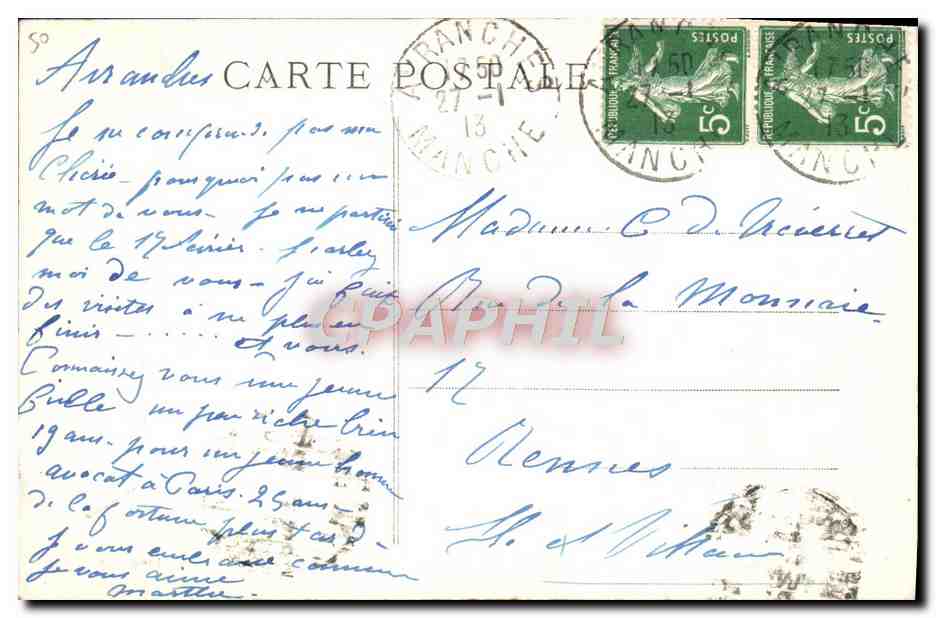 50
Avranches
CARTE POSTALE
AVRANCHES
17 50
27 - 1
13
MANCHE
POSTES
RÉPUBLIQUE FRANÇAISE
5c
POSTES
RÉPUBLIQUE FRANÇAISE
5c
Je ne comprends pas ma
Chérie - pourquoi pas un
mot de vous - Je ne partirai
que le 17 février. Parlez
moi de vous - j'ai fait
des visites à ne plus en
finir - ..... et vous.
Connaissez vous une jeune
fille un peu riche bien
19 ans - pour un jeune homme
avocat à Paris. 25 ans -
de la fortune plus tard -
Je vous embrasse comme
Je vous aime
Marthe -
Madame C de
Rue de la Monnaie
17
Rennes
Ile et Vilaine
CPAPHIL